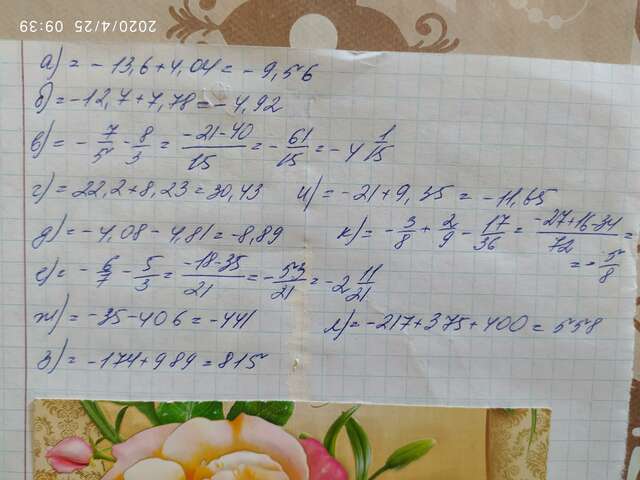 2020/4/25 09:39
а) = -13,6+4,04 = -9,56
б) = -12,7+7,78 = -4,92
в) = - 7/5 - 8/3 = (-21-40)/15 = - 61/15 = -4 1/15
г) = 22,2+8,23 = 30,43 и) = -21+9,35 = -11,65
д) = -4,08-4,81 = -8,89 к) = - 3/8 + 2/9 - 17/36 = (-27+16-34)/72 =
= - 5/8
е) = - 6/7 - 5/3 = (-18-35)/21 = - 53/21 = -2 11/21
ж) = -35-406 = -441 л) = -217+375+400 = 558
з) = -174+989 = 815